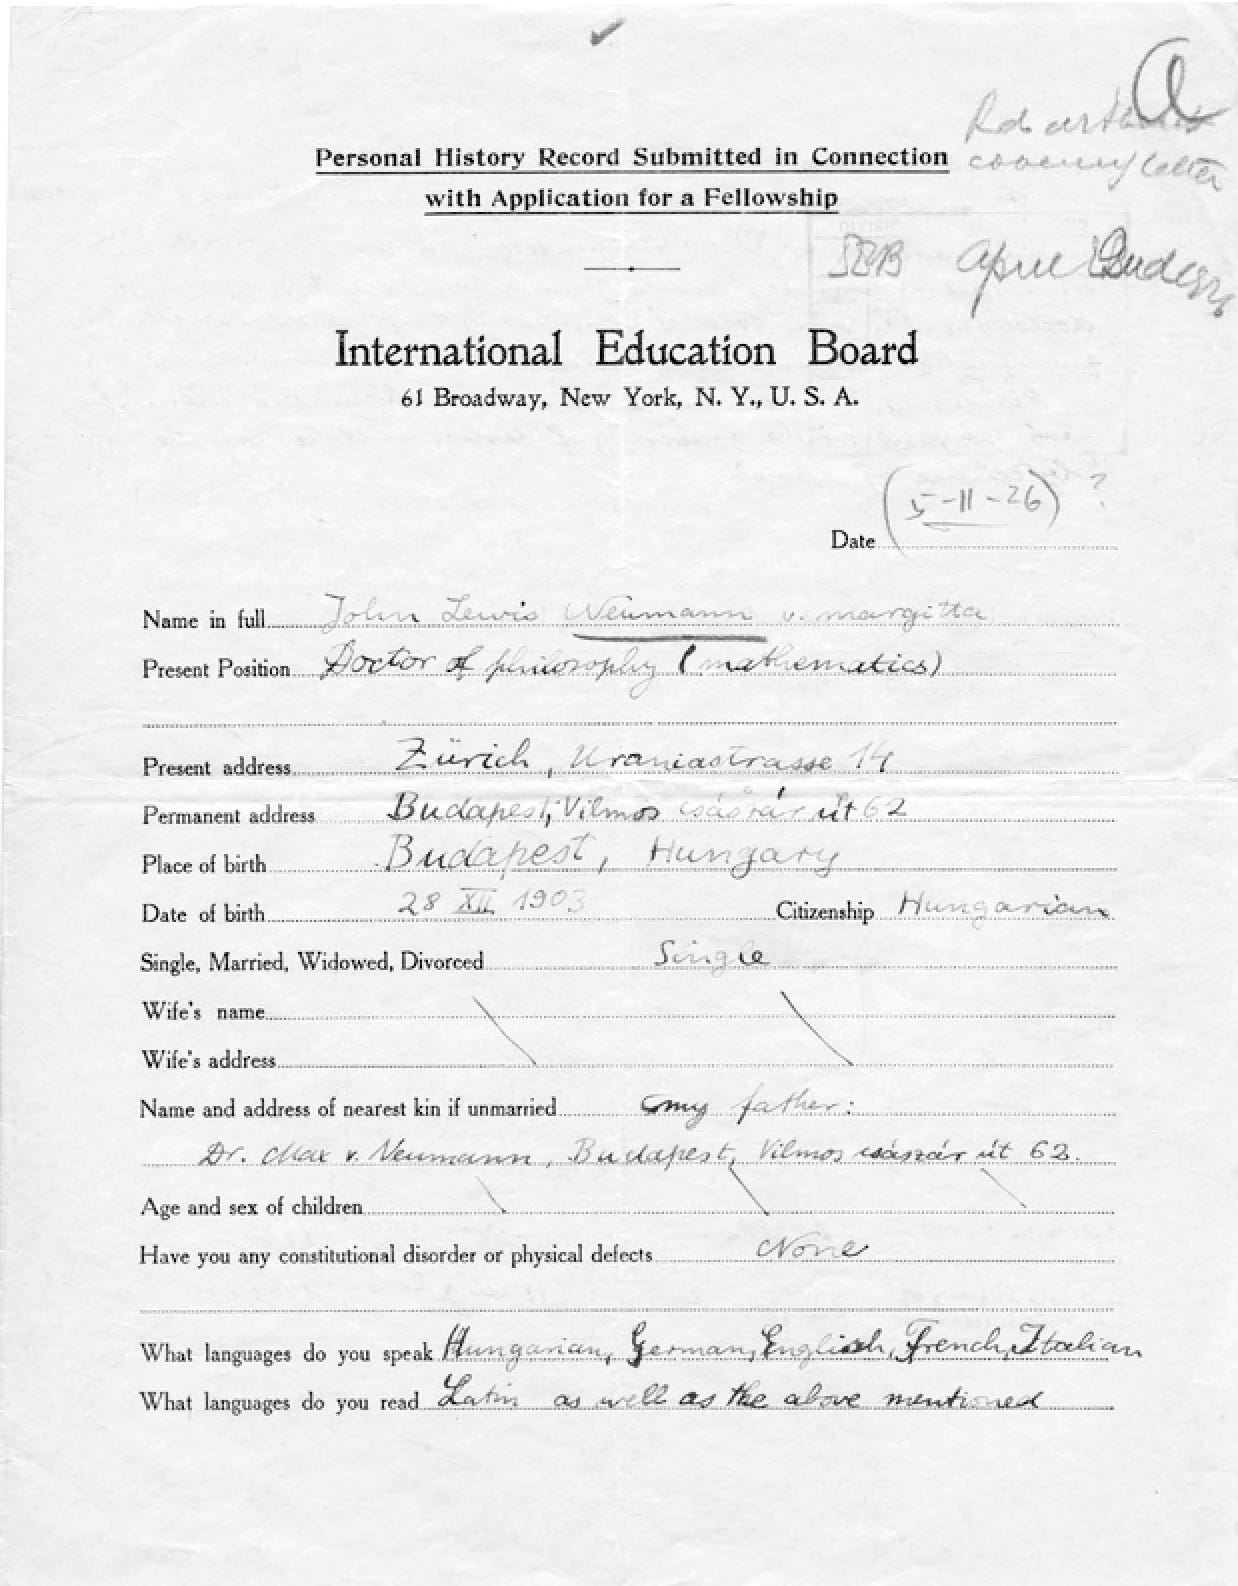 Personal History Record Submitted in Connection
with Application for a Fellowship
covering letter
IEB April
International Education Board
61 Broadway, New York, N. Y., U. S. A.
Date (5-11-26) ?
Name in full John Lewis Neumann v. margitta
Present Position Doctor of philosophy (mathematics)
Present address Zürich, Uraniastrasse 14
Permanent address Budapest, Vilmos császár út 62
Place of birth Budapest, Hungary
Date of birth 28 XII 1903 Citizenship Hungarian
Single, Married, Widowed, Divorced Single
Wife's name
Wife's address
Name and address of nearest kin if unmarried my father:
Dr. Max v. Neumann, Budapest, Vilmos császár út 62.
Age and sex of children
Have you any constitutional disorder or physical defects None
What languages do you speak Hungarian, German, English, French, Italian
What languages do you read Latin as well as the above mentioned